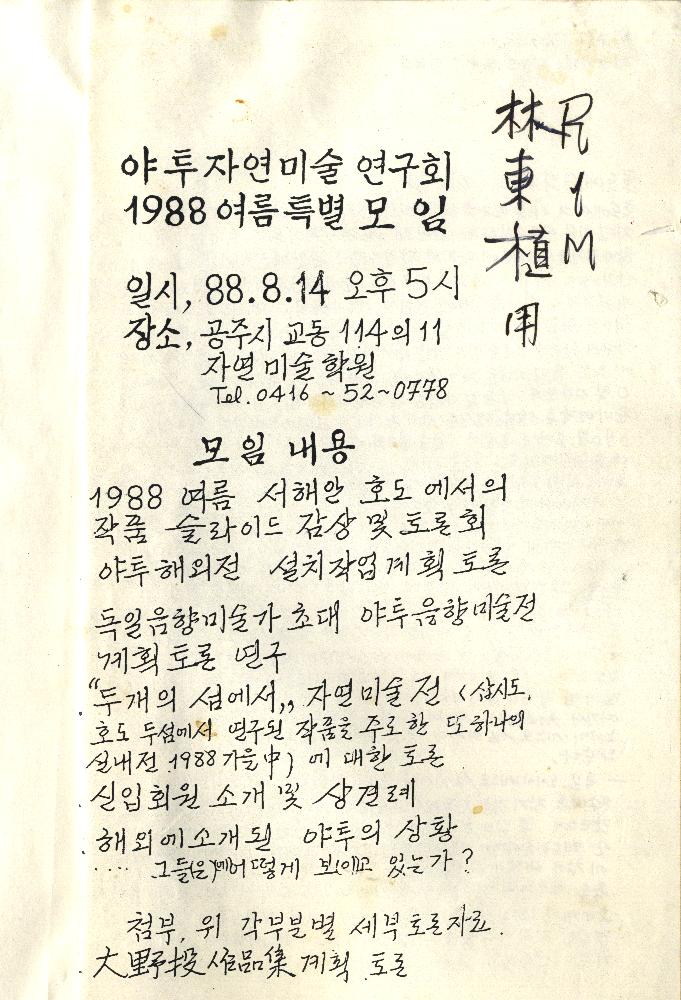 야투자연미술 연구회
1988 여름특별 모임
林東植用
RIM
일시, 88.8.14 오후 5시
장소, 공주시 교동 114의 11
자연 미술 학원
Tel. 0416 ~ 52~0778
모임 내용
1988 여름 서해안 호도 에서의
작품 슬라이드 감상 및 토론회
야투해외전 설치작업계획 토론
독일음향미술가 초대 야투음향미술전
계획 토론 연구
"두개의 섬에서,, 자연미술전 <삽시도,
호도 두섬에서 연구된 작품을 주로한 또하나의
실내전 1988 가을中) 에 대한 토론
신입회원 소개 및 상견례
해외에소개된 야투의 상황
.... 그들(은)에어떻게 보(이)고 있는가?
첨부, 위 각부분별 세부토론자료.
大野投作品集 계획 토론